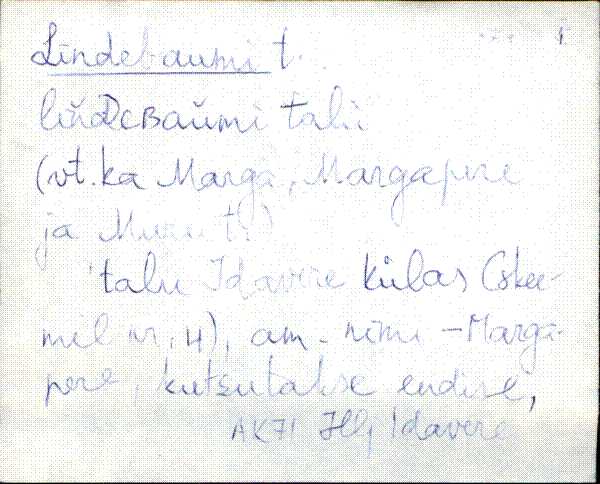 Lindebaumi t.
lińDeBaŭmi talu
(vt. ka Marga, Margapere
ja t.)
talu Idavere külas (skee-
mil nr. 4), am. nimi – Marga-
pere, kutsutakse endise,
AK71 Hlj Idavere